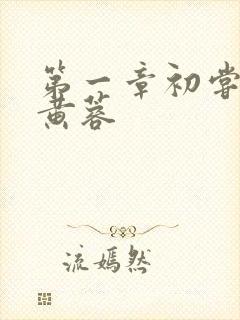 第一章初尝
黄蓉
流嫣然